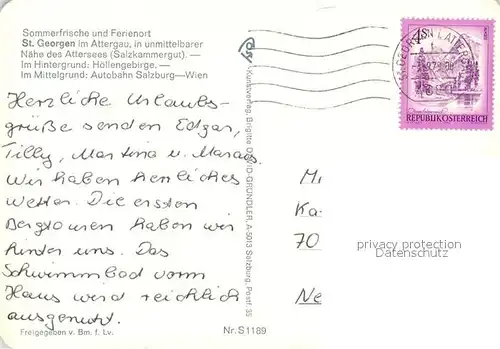 Sommerfrische und Ferienort
St. Georgen im Attergau, in unmittelbarer
Nähe des Attersees (Salzkammergut). —
Im Hintergrund: Höllengebirge. —
Im Mittelgrund: Autobahn Salzburg—Wien
Herzliche Urlaubs-
grüße senden Edgar,
Tilly, Martina u. Marcus.
Wir haben herrliches
Wetter. Die ersten
Bergtouren haben wir
hinter uns. Das
Schwimmbad vorm
Haus wird reichlich
ausgenutzt.
Freigegeben v. Bm. f. Lv.
Nr. S 1189
Kunstverlag Brigitte DAVID-GRÜNDLER, A-5013 Salzburg, Postf. 35
REPUBLIK ÖSTERREICH
Ka
70
privacy protection
Datenschutz
Ne